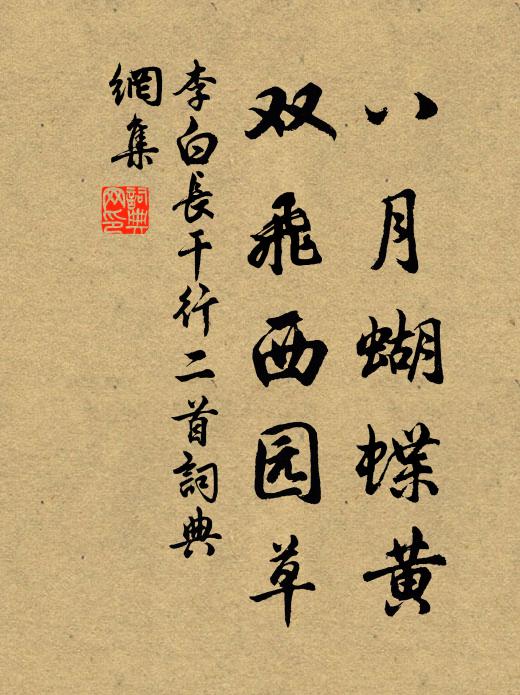 八月蝴蝶黄
双飛西园草
李白長干行二首詞典
網集
詞典
网印